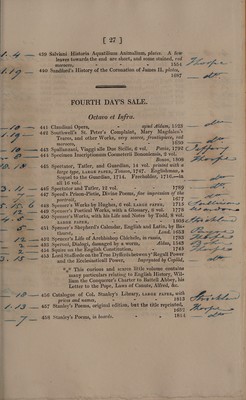 [ 27 ]
1. 4 — 439 Salviani Historia Aquatilium Animalium, plates. A few
leaves towards the end are short, and some stained, red
morocco, 1554 Thorpe
1. 19 — 440 Sandford's History of the Coronation of James II. plates,
1687 — do
FOURTH DAY'S SALE.
Octavo et Infra.
441 Claudiani Opera, apud Aldum, 1523
442 Southwell's St. Peter's Complaint, Mary Magdalen's
Teares, and other Works, very scarce, frontispiece, red
morocco, 1630
443 Spallanzani, Viaggi alle Due Sicilie, 6 vol. Pavia, 1792
444 Specimen Inscriptionum Commercii Bononiensis, 2 vol.
Bonon. 1808
445 Spectator, Tatler, and Guardian, 14 vol. printed with a
large type, LARGE PAPER, Tonson, 1747. Englishman, a
Sequel to the Guardian, 1714. Freeholder, 1716.—in
all 16 vol.
446 Spectator and Tatler, 12 vol. 1789
447 Speed's Prison-Pietie, Divine Poems, fine impression of the
portrait, 1677
448 Spenser's Works by Hughes, 6 vol. LARGE PAPER, 1715
449 Spenser's Poetical Works, with a Glossary, 6 vol.
450 Spenser's Works, with his Life and Notes by Todd, 8 vol.
LARGE PAPER, 1805
451 Spenser's Shepherd's Calendar, English and Latin, by Ba-
thurst, Lond. 1653
452 Spenser's Life of Archbishop Chichele, in russia, 1783
453 Speroni, Dialogi, damaged by a worm, Aldus, 1540
454 Squire on the English Constitution, 1745
455 Lord Staffords on the True Dyfferēs betwen yͤ Regall Power
and the Ecclesiasticall Power, Imprynted by Copland,
*⁎* This curious and scarce little volume contains
many particulars relating to English History, Wil-
liam the Conqueror's Charter to Battell Abbey, his
Letter to the Pope, Laws of Canute, Alfred, &c.
456 Catalogue of Col. Stanley's Library, LARGE PAPER, with
prices and names, 1813
457 Stanley's Poems, original edition, but the title reprinted,
1652
458 Stanley's Poems, in boards, 1814